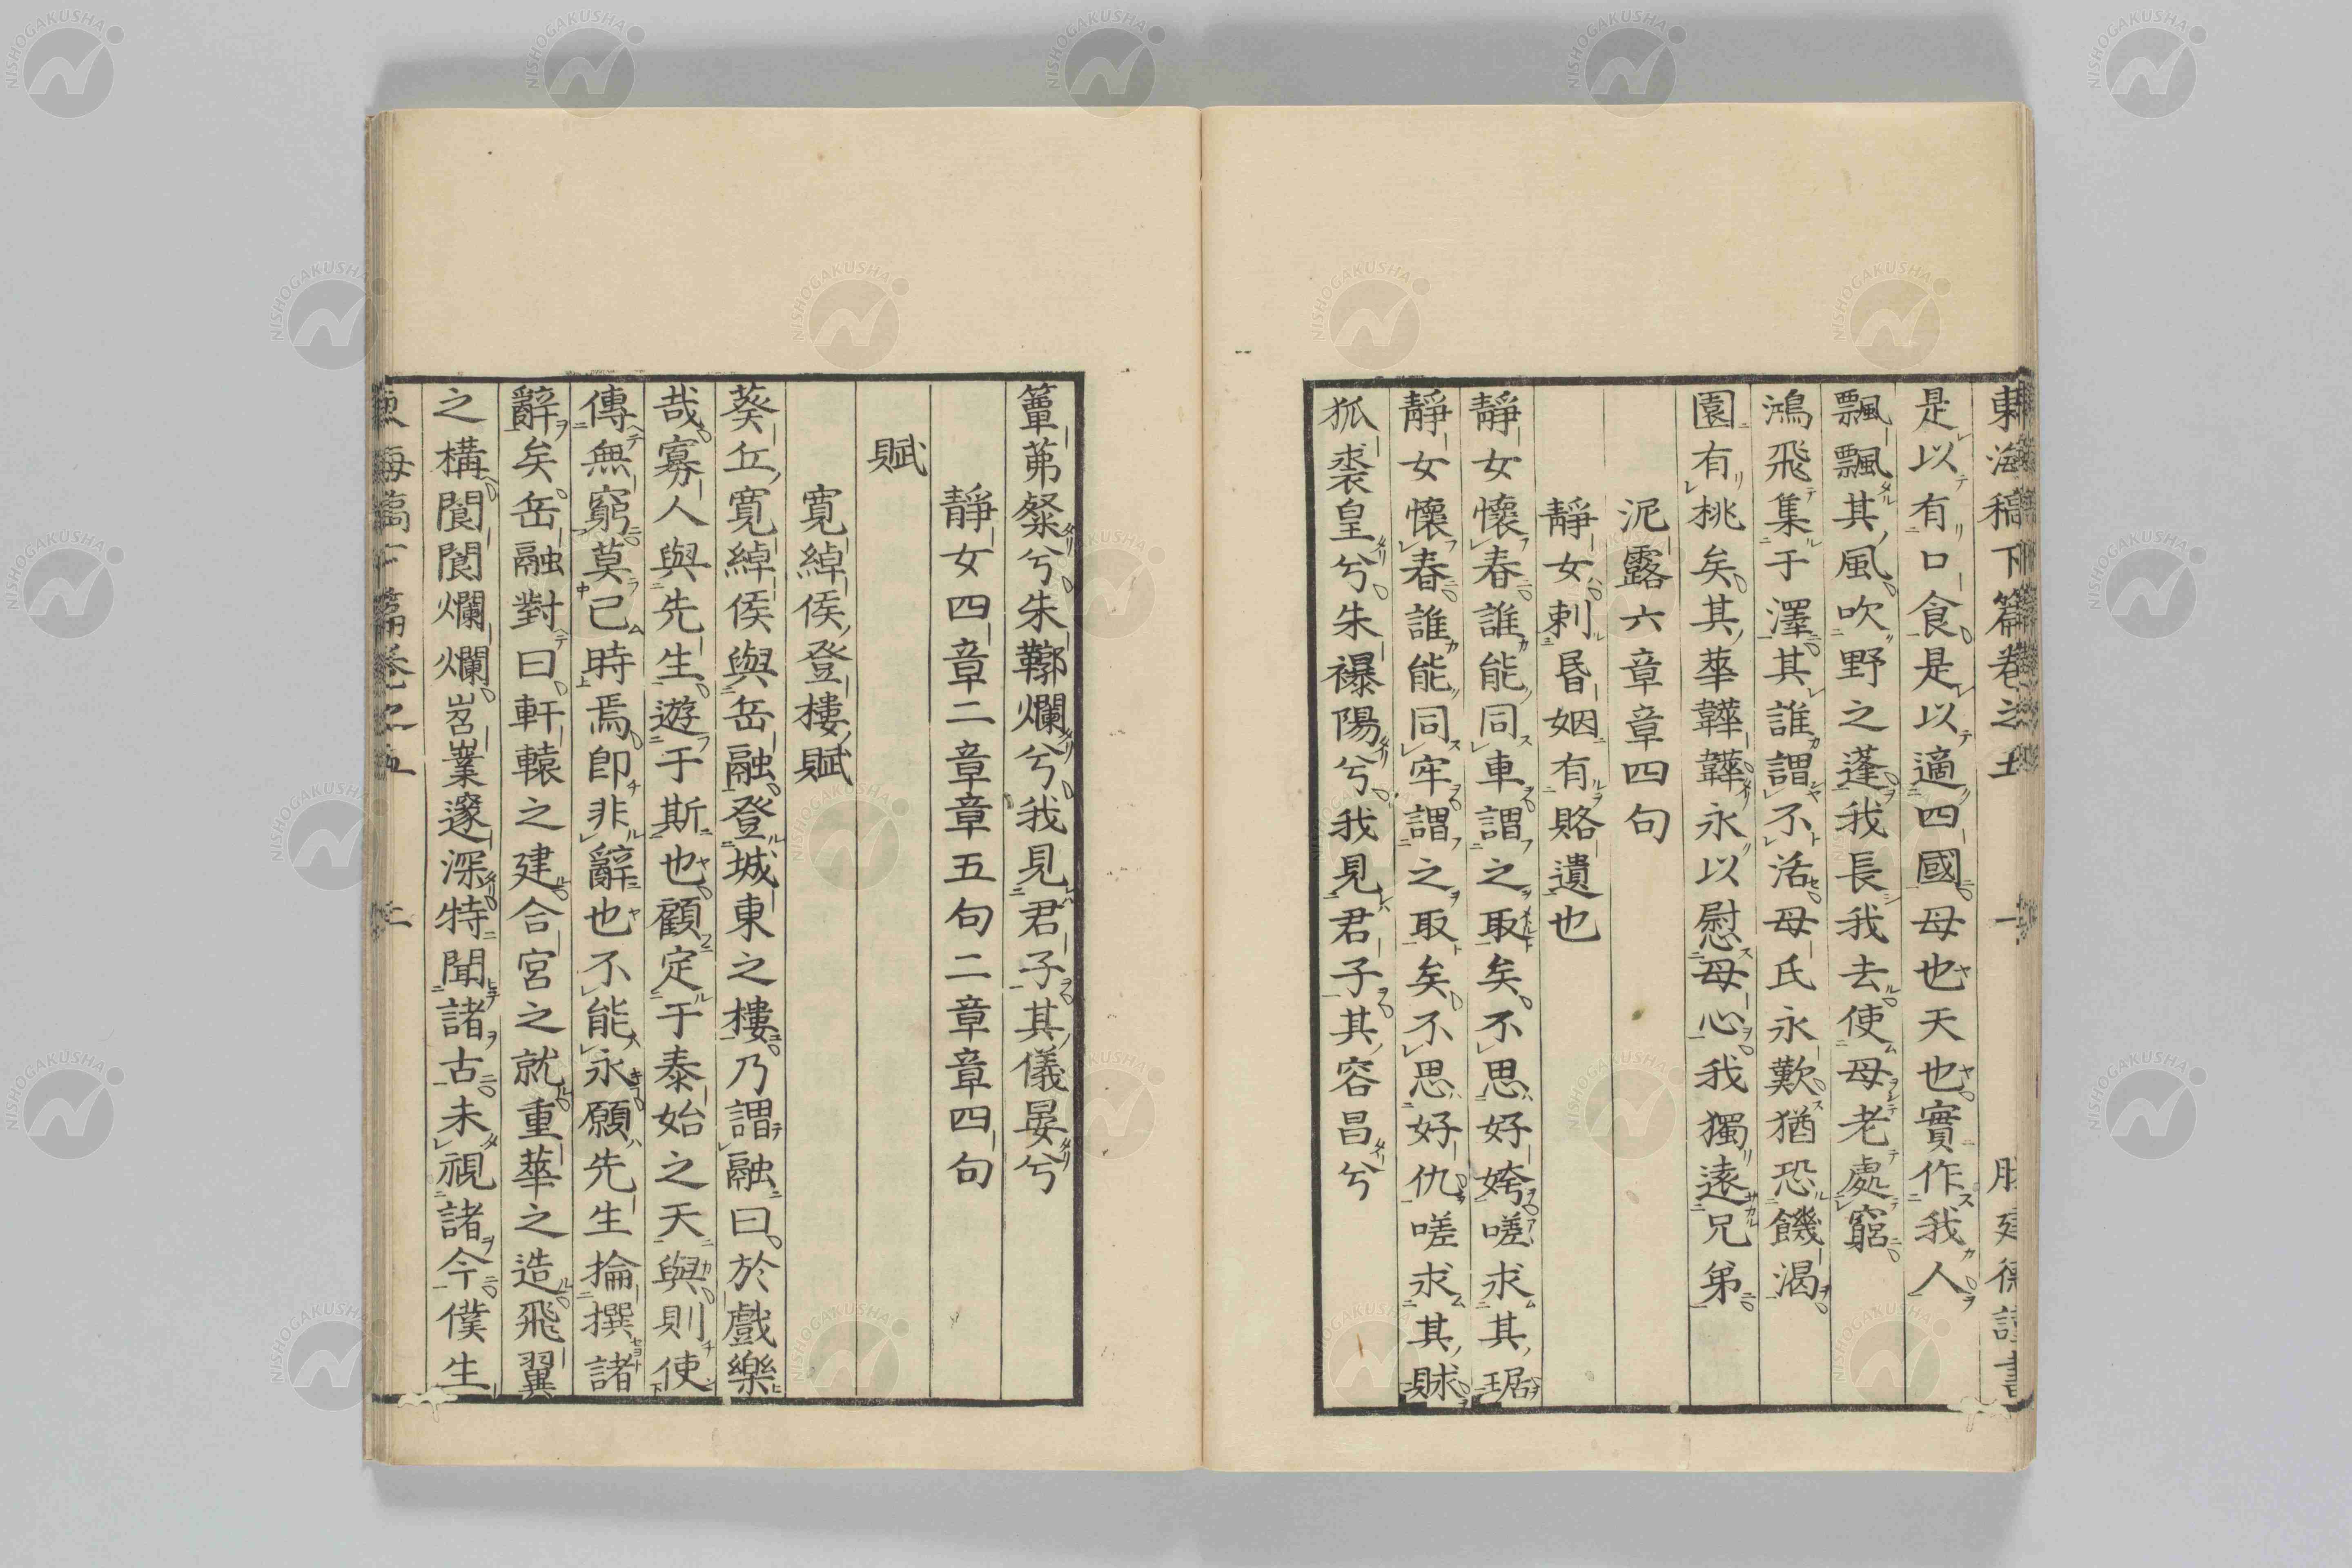 東海稿下篇卷之五 一
是以有口食是以適四國母也天也實作我人
飄飄其風吹野之蓬我長我去使母老處窮
鴻飛集于澤其誰謂不活母氏永歎猶恐饑渴
園有桃矣其華韡韡永以慰母心我獨遠兄弟
泥露六章章四句
靜女刺昏姻有賂遺也
靜女懷春誰能同車謂之取矣不思好姱嗟求其琚
靜女懷春誰能同牢謂之取矣不思好仇嗟求其賕
狐裘皇兮朱襮陽兮我見君子其容昌兮
簟茀粲兮朱鞹爛兮我見君子其儀晏兮
靜女四章二章章五句二章章四句
賦
寬綽侯登樓賦
葵丘寬綽侯與岳融登城東之樓乃謂融曰於戲樂
哉寡人與先生遊于斯也顧定于泰始之天與則使
傳無窮莫已時焉即非辭也不能永願先生掄撰諸
辭矣岳融對曰軒轅之建合宮之就重華之造飛翼
之構閬閬爛爛岧嶪邃深特聞諸古未視諸今僕生
東海稿下篇卷之五 二
NISHOGAKUSHA